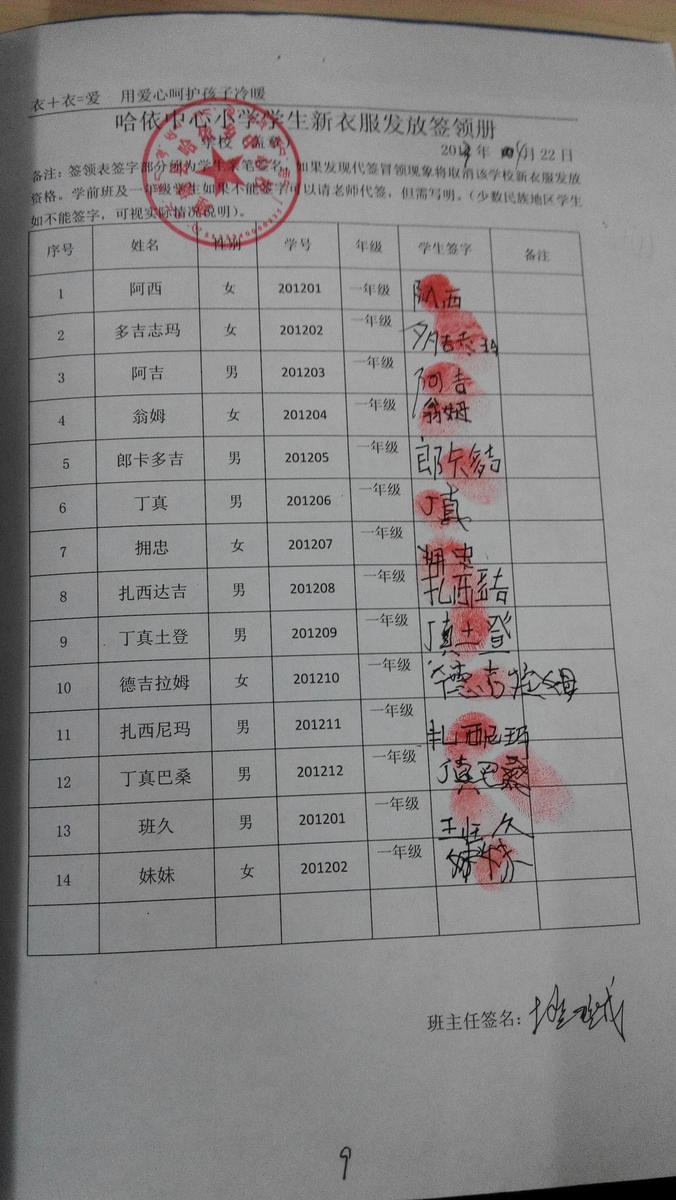 衣+衣=爱 用爱心呵护孩子冷暖
哈依中心小学学生新衣服发放签领册
学校 盖章 年 月22日
备注：签领表签字部分须为学生亲笔签名，如果发现代签冒领现象将取消该学校新衣服发放
资格。学前班及一年级学生如果不能签字可以请老师代签，但需写明。（少数民族地区学生
如不能签字，可视实际情况说明）。
序号 姓名 性别 学号 年级 学生签字 备注
1 阿西 女 201201 一年级 阿西
2 多吉志玛 女 201202 一年级 多吉志玛
3 阿吉 男 201203 一年级 阿吉
4 翁姆 女 201204 一年级 翁姆
5 郎卡多吉 男 201205 一年级 郎卡多吉
6 丁真 男 201206 一年级 丁真
7 拥忠 女 201207 一年级 拥忠
8 扎西达吉 男 201208 一年级 扎西达吉
9 丁真土登 男 201209 一年级 丁真土登
10 德吉拉姆 女 201210 一年级 德吉拉姆
11 扎西尼玛 男 201211 一年级 扎西尼玛
12 丁真巴桑 男 201212 一年级 丁真巴桑
13 班久 男 201201 一年级 班久
14 妹妹 女 201202 一年级 妹妹
班主任签名：
9